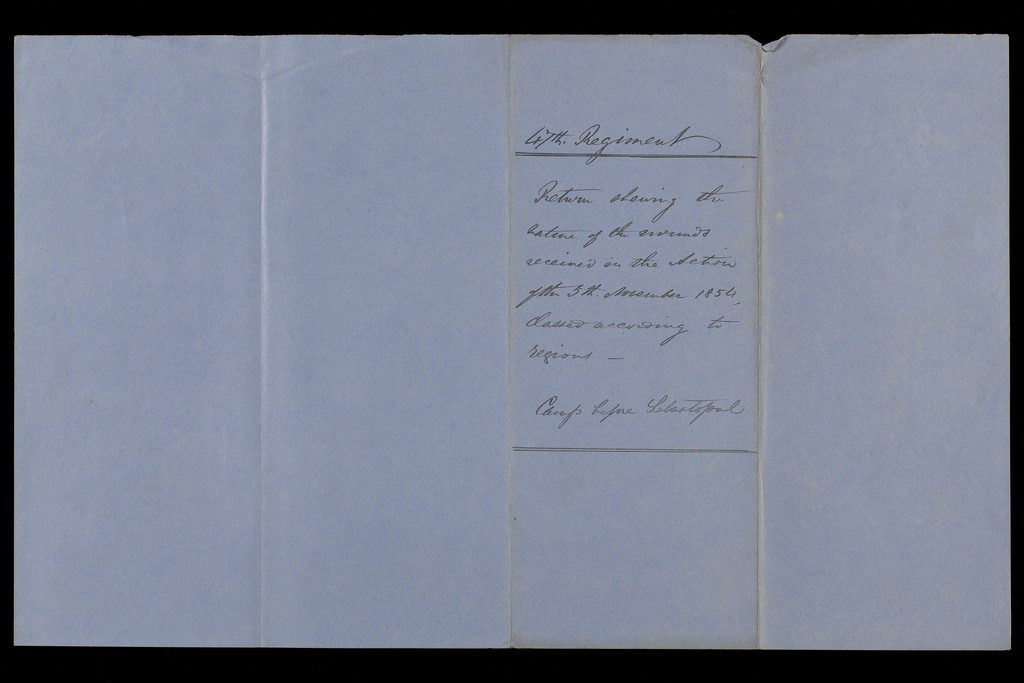 47th. Regiment
Return shewing the
nature of the wounds
received in the Action
of the 5th. November 1854,
classed according to
regions —
Camp before Sebastopol